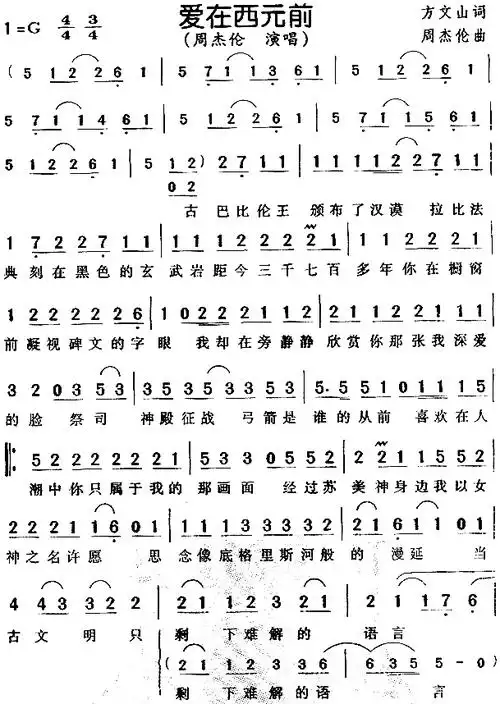 爱在西元前
1=G 4/4 3/4
方文山词
(周杰伦 演唱)
周杰伦曲
(5 1 2 2 6 1 | 5 7 1 1 3 6 1 | 5 1 2 2 6 1 |
5 7 1 1 4 6 1 | 5 1 2 2 6 1 | 5 7 1 1 5 6 1 |
5 1 2 2 6 1 | 5 1 2) 2 7 1 1 | 1 1 1 1 2 2 2 7 1 1 |
0 2
古 巴比伦王 颁布了汉谟 拉比法
1 7 2 2 2 7 1 1 | 1 1 1 2 2 2 2 1 | 1 1 1 2 2 2 1 1
典刻在黑色的玄 武岩距今三千七百 多年你在橱窗
1 2 2 2 2 2 6 | 1 2 0 1 2 2 2 2 | 1 2 1 1 2 2 1 1
前凝视碑文的字 眼 我却在旁静静 欣赏你那张我深爱
3 2 0 3 5 3 | 1 3 5 3 5 5 3 3 5 3 | 5 . 5 5 1 0 1 1 1 5
的脸 祭司 神殿征战 弓箭是 谁的从前 喜欢在人
5 2 2 2 2 2 2 1 | 5 3 3 0 5 5 2 | 2 1 1 5 5 2
潮中你只属于我的 那画面 经过苏 美神身边我以女
2 2 2 1 6 0 1 | 1 2 2 2 1 2 2 1 1 | 2 1 6 1 1 0 1
神之名许愿 思 念像底格里斯河般 的漫延 当
4 4 3 3 2 2 | 2 1 1 2 3 2 1 | 2 1 1 7 6
古文明只 剩下难解的 语言
(2 1 1 2 3 2 1 2 | 6 3 5 5 - 0)
剩下难解的语 言